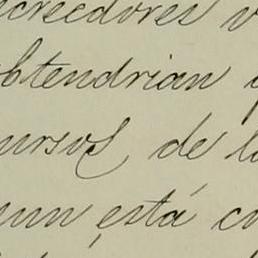 creedores v
obtendrian q
ursos de l
un está c